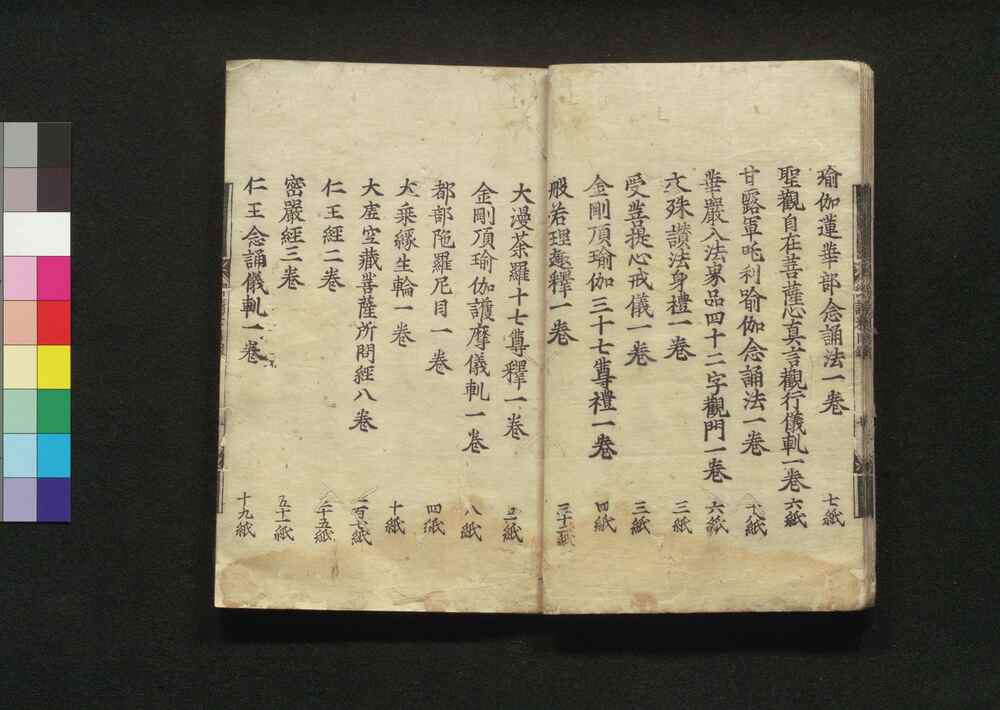 瑜伽蓮華部念誦法一卷 七紙
聖觀自在菩薩心真言觀行儀軌一卷 六紙
甘露軍吒利瑜伽念誦法一卷 紙
華嚴入法界品四十二字觀門一卷 六紙
文殊讃法身禮一卷 三紙
受菩提心戒儀一卷 三紙
金剛頂瑜伽三十七尊禮一卷 四紙
般若理趣釋一卷 三十二紙
大漫荼羅十七尊釋一卷 二紙
金剛頂瑜伽護摩儀軌一卷 八紙
都部陁羅尼目一卷 四紙
大乘緣生輪一卷 十紙
大虛空藏菩薩所問經八卷 紙
仁王經二卷 三十五紙
密嚴經三卷 五十一紙
仁王念誦儀軌一卷 十九紙